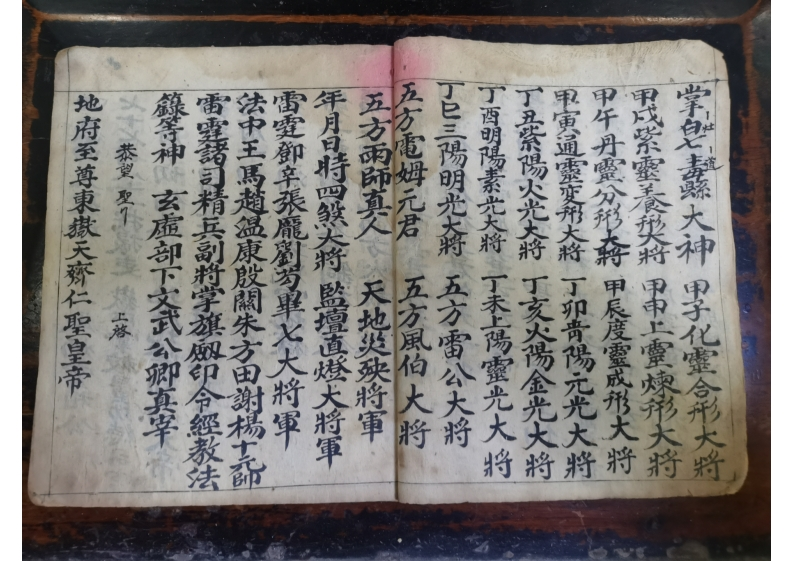 掌亀七毒縣大神 甲子化靈合形大將
甲戌紫靈養形大將 甲申上靈煉形大將
甲午丹靈分形大將 甲辰度靈成形大將
甲寅通靈変形大將 丁卯青陽元光大將
丁丑紫陽火光大將 丁亥火陽金光大將
丁酉明陽素光大將 丁未上陽靈光大將
丁巳三陽明光大將 五方雷公大將
五方電姆元君 五方風伯大將
五方雨師真人 天地災殃將軍
年月日時四煞大將 監壇直燈大將軍
雷霆鄧辛張龐劉芶畢七大將軍
法中王馬趙溫康殷關朱方田謝楊十元帥
雷霆諸司精兵副將掌旗劔印令經教法
籙等神 玄虛部下文武公卿真宰
恭望 聖 上啓
地府至尊東嶽天齊仁聖皇帝